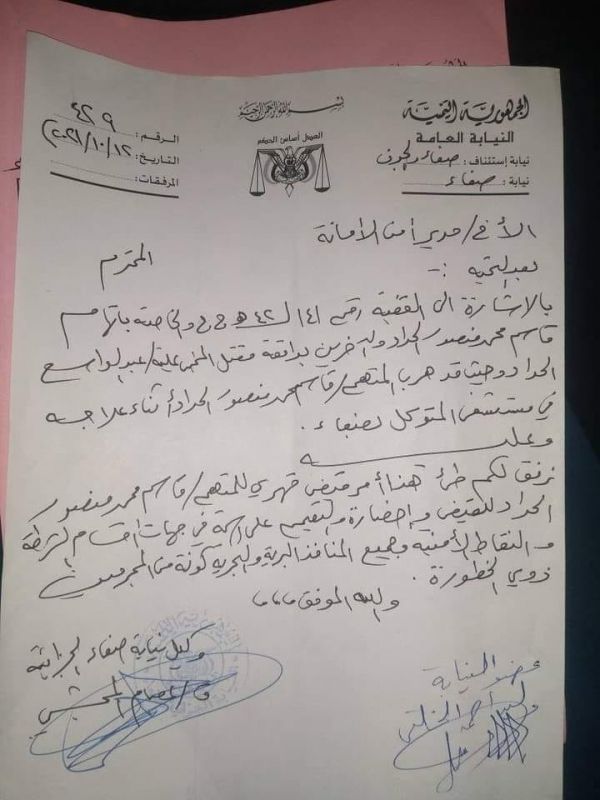 بسم الله الرحمن الرحيم
الجمهورية اليمنية
النيابة العامة
نيابة إستئناف: صنعاء والجوف
نيابة: صنعاء
العدل أساس الحكم
الرقم: ٤٢٩
التاريخ: ٢٠٢١/١٠/١٢
المرفقات:
الأخ/ مدير أمن الأمانة
المحترم
بعد التحية :-
بالاشارة الى القضية رقم ١٤١ لـ ٤٢هـ ج ج والخاصة باتهام
قاسم محمد منصور الحداد وآخرين بواقعة مقتل المجني علية/ عبدالواسع
الحداد وحيث قد هرب المتهم/ قاسم محمد منصور الحداد أثناء علاجه
في مستشفى المتوكل بصنعاء .
وعليه
نرفق لكم طي هذا أمر قبض قهري للمتهم/ قاسم محمد منصور
الحداد للقبض و إحضارة والتعميم على اسمة في جهات اقسام الشرطة
و النقاط الأمنية وجميع المنافذ البرية والبحرية كونة من المجرمين
ذوي الخطورة .
والله الموفق
وكيل نيابة صنعاء الجزائية
عضو النيابة